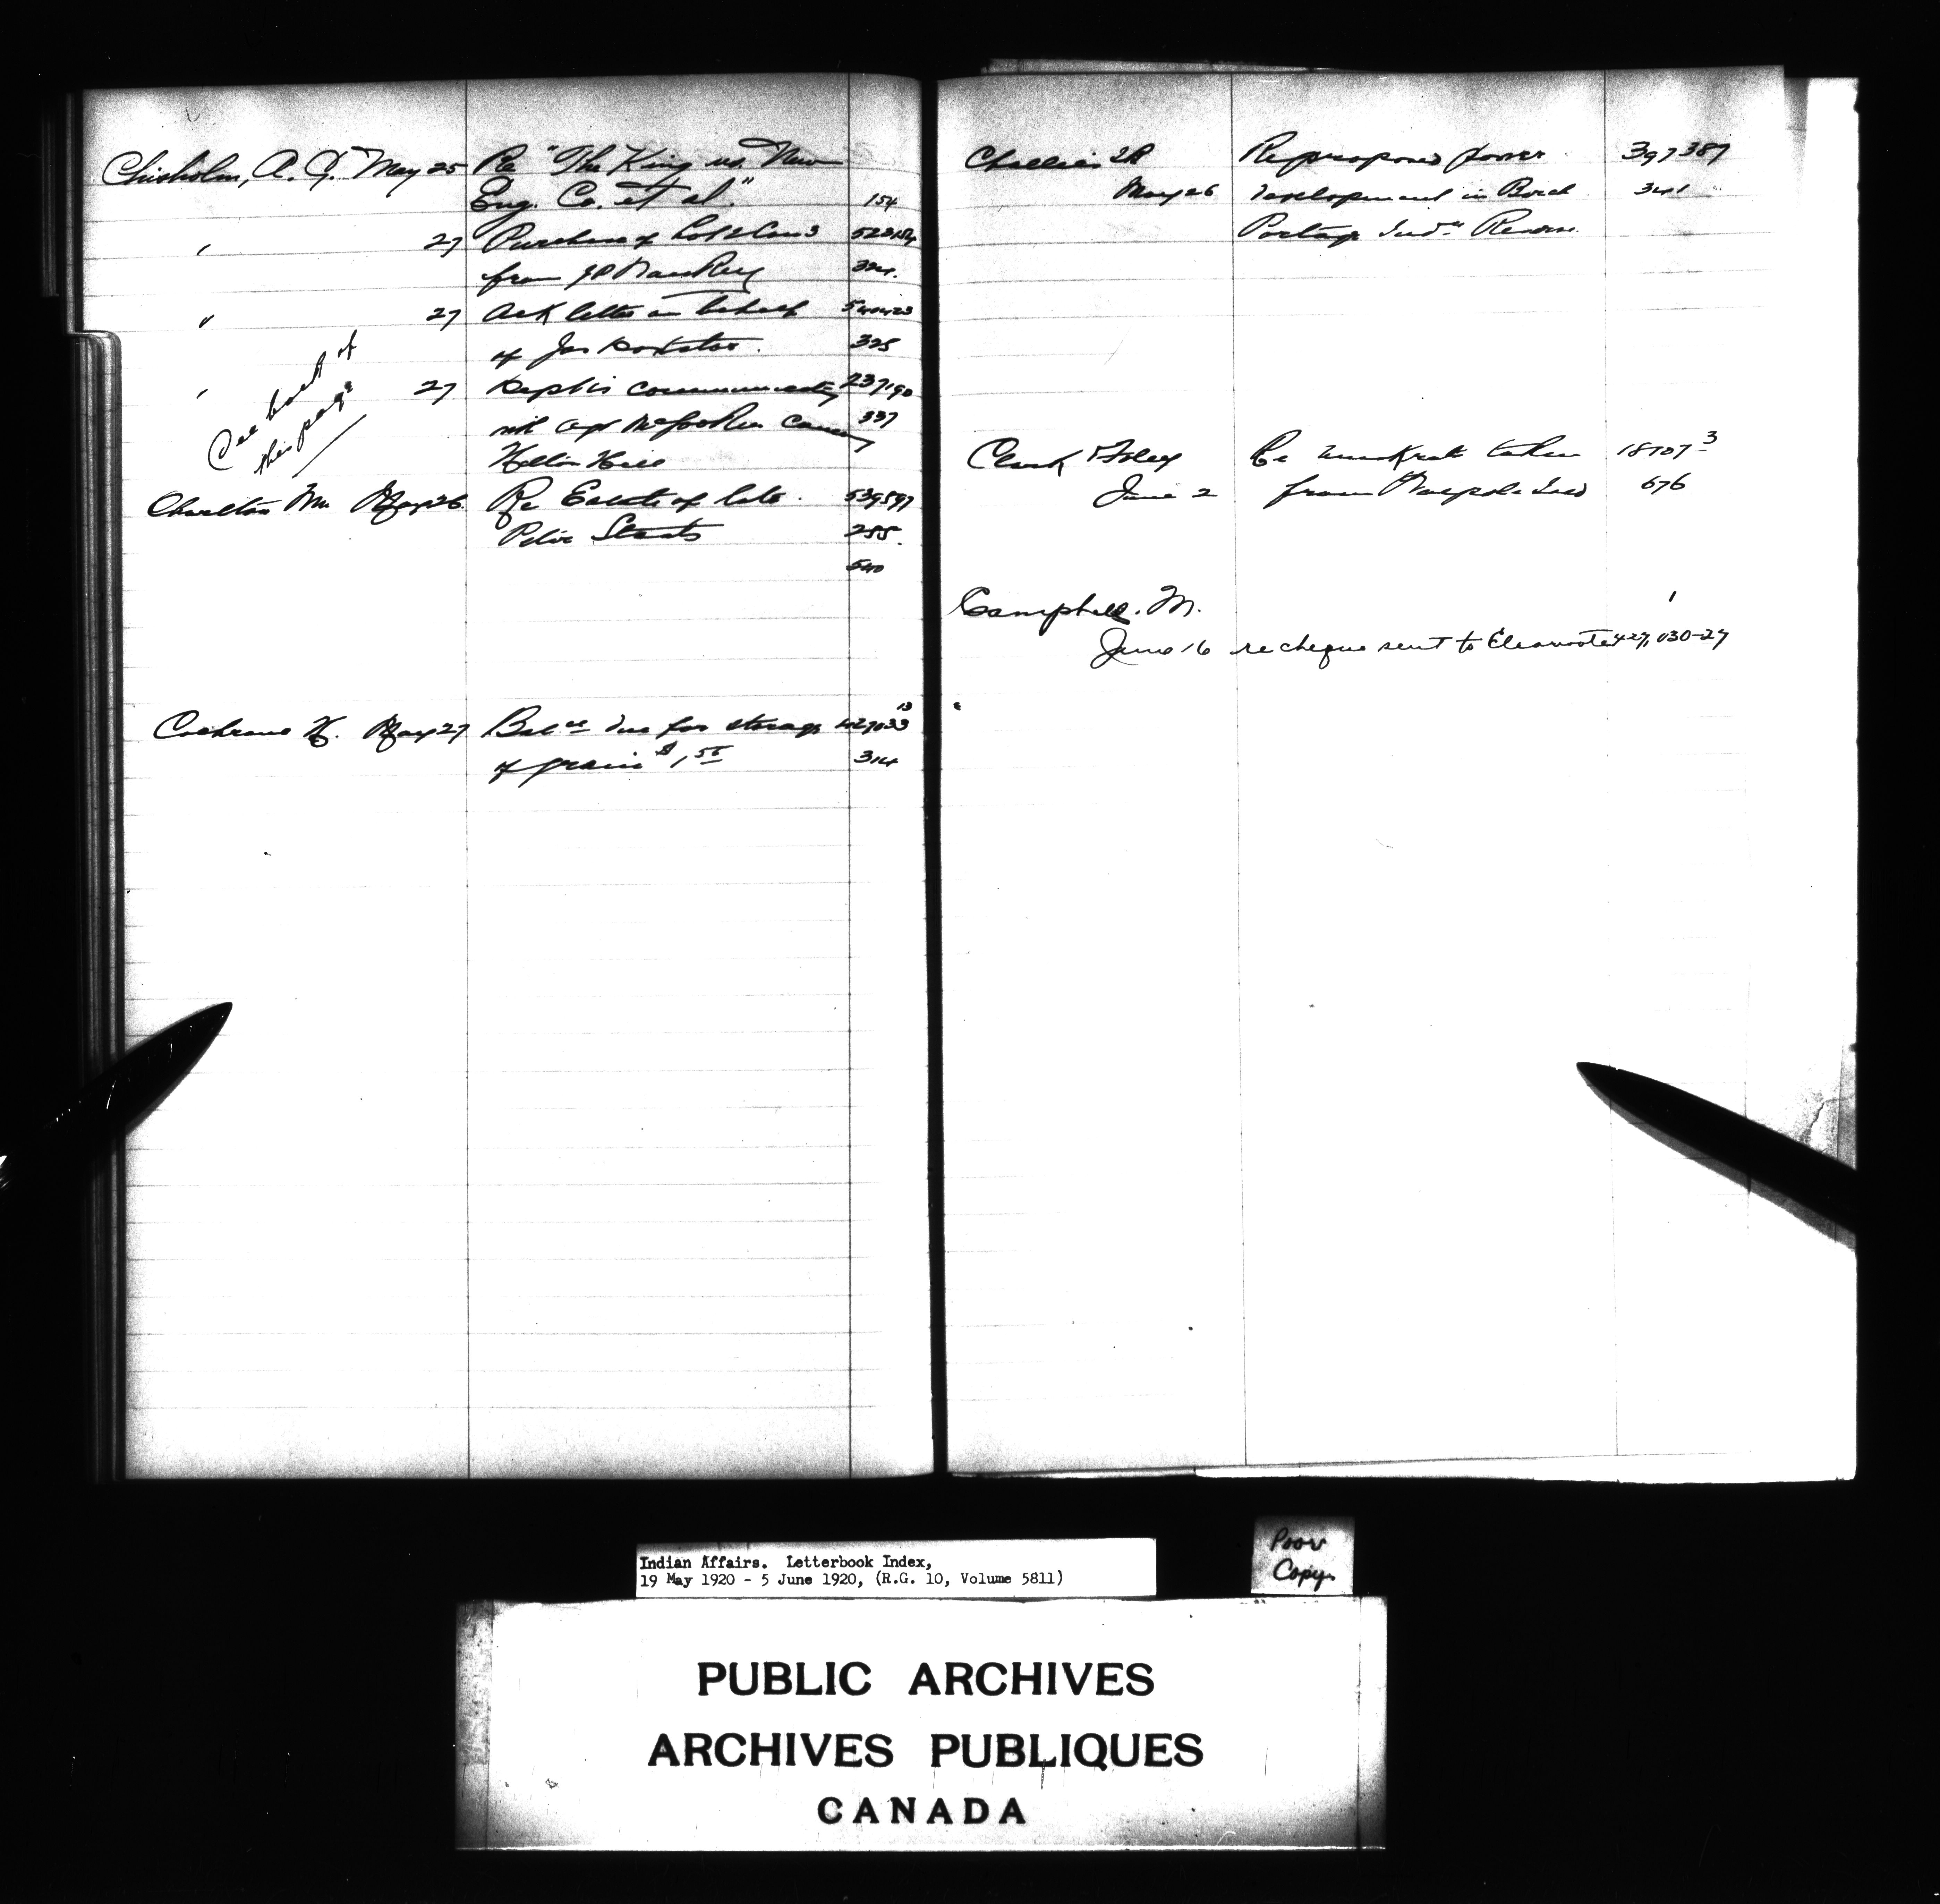 Chisholm, A. G. May 25 Re "The King vs. New
Eng. Co. et al." 154
" 27 Purchase of Lot 2 Con 3
from 324.
" 27 Ack letter on behalf
of Jas 325
" 27 communicate 237190
with Agt 337
See back of
this page
Charlton Wm May 26. Re Estate of late. 539597
Peter Staats 255.
540
Cochrane W. May 27 Balce due for storage 427033 13
of grain $1.55 314
Challies J B Re proposed power 397387
May 26 development in Birch 341
Portage Indn Reserve.
Clark & Foley Re muskrats taken 18707 3
June 2 from Walpole Isld 676
Campbell. M. 1
June 16 re cheque sent to 427,030-27
Indian Affairs. Letterbook Index,
19 May 1920 - 5 June 1920, (R.G. 10, Volume 5811)
Poor
Copy
PUBLIC ARCHIVES
ARCHIVES PUBLIQUES
CANADA